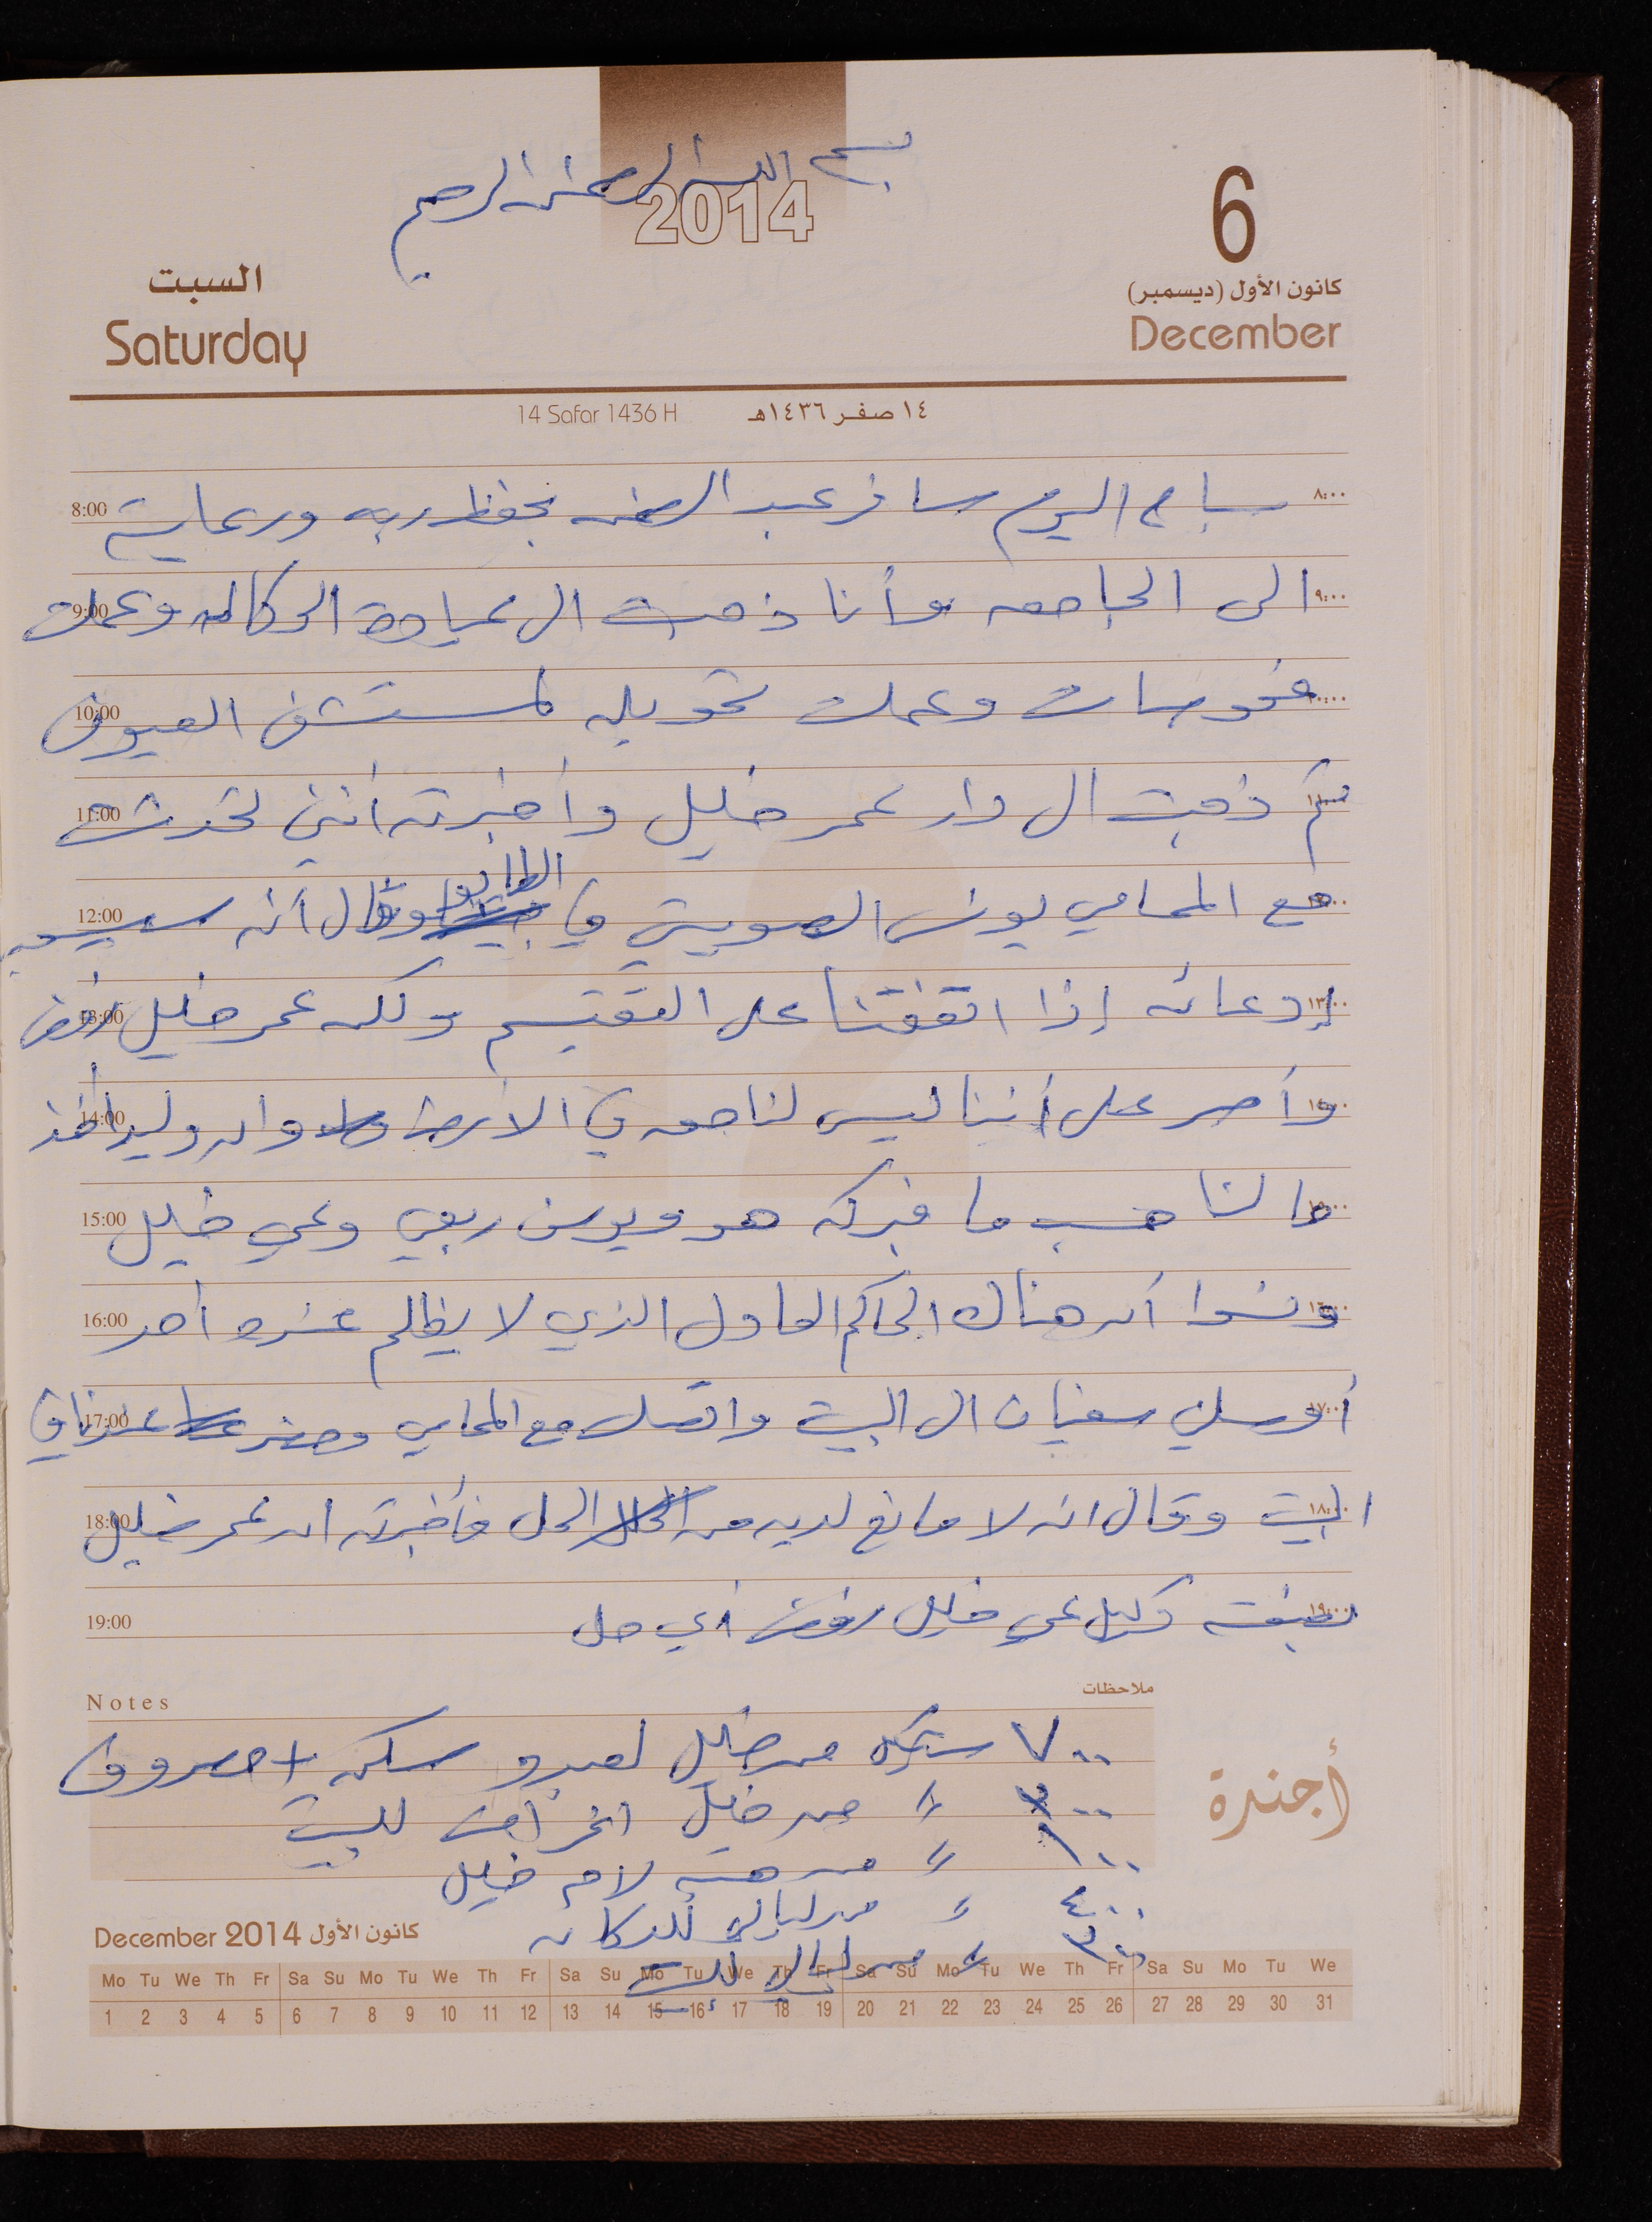 بسم الله الرحمن الرحيم
2014
6
كانون الأول (ديسمبر)
December
السبت
Saturday
14 Safar 1436 H ١٤ صفر ١٤٣٦هـ
٨:٠٠ صباح اليوم سافر عبد الرحمن بحفظ ربه ورعايته 8:00
٩:٠٠ الى الجامعه وأنا ذهبت الى عيادة الوكاله وعملت 9:00
١٠:٠٠ فحوصات وعملت تحويله لمستشفى العيون 10:00
١١:٠٠ ثم ذهبت الى دار عمر خليل وأخبرته أنني تحدثت 11:00
١٢:٠٠ مع المحامي يونس الصويتي في الطابو وقال أنه سيسحب 12:00
١٣:٠٠ إدعائه إذا اتفقنا على التقسيم ولكن عمر خليل رفض 13:00
١٤:٠٠ وأصر على أننا ليس لنا حصه في الارض وان وليد أخذ 14:00
١٥:٠٠ ما لنا حسب ما فبركه هو ويونس ربعي وعمي خليل 15:00
١٦:٠٠ ونسوا أن هناك الحاكم العادل الذي لا يظلم عنده أحد 16:00
١٧:٠٠ أوصلني سفيان الى البيت واتصلت مع المحامي وحضر عندنا في 17:00
١٨:٠٠ البيت وقال انه لا مانع لديه من الحل فأخبرته ان عمر خليل 18:00
١٩:٠٠ بصفته وكيل عمي خليل رفض أي حل 19:00
Notes ملاحظات
٧٠٠ شيكل من خليل لعبدو سكن + مصروف
٣٠٠ " من خليل اغراض للبيت
١٠٠ " من لام خليل
٤٠٠ " للدكان
٣٠٠ " للبيت
أجندة
December 2014 كانون الأول
Mo Tu We Th Fr Sa Su Mo Tu We Th Fr Sa Su Mo Tu We Th Fr Sa Su Mo Tu We Th Fr Sa Su Mo Tu We
1 2 3 4 5 6 7 8 9 10 11 12 13 14 15 16 17 18 19 20 21 22 23 24 25 26 27 28 29 30 31